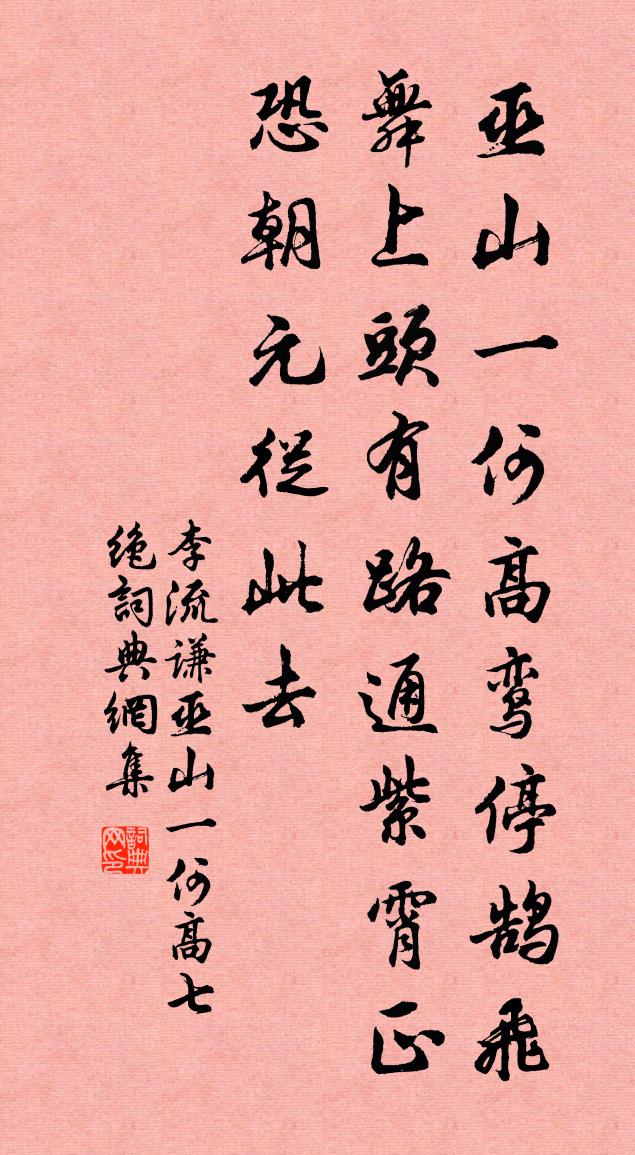 巫山一何高鸾停鹄飛
舞上頭有路通紫霄正
恐朝元從此去
李流谦巫山一何高七
绝詞典網集
詞典网印